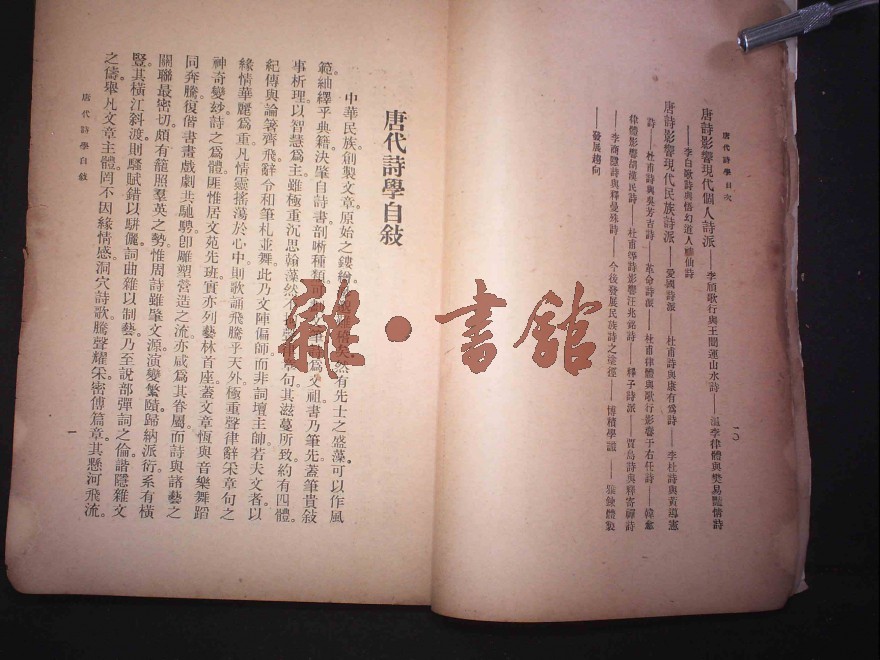 唐代詩學目次
唐詩影響現代個人詩派——李頎歌行與王闓運山水詩——溫李律體與樊易豔情詩
——李白歌詩與悟幻道人離仙詩
唐詩影響現代民族詩派——愛國詩派——杜甫詩與康有爲詩——李杜詩與黃遵憲
詩——杜甫詩與吳芳吉詩——革命詩派——杜甫律體與歌行影響于右任詩——韓
律體影響胡漢民詩——杜甫詩影響汪兆銘詩——釋子詩派——賈島詩與釋寄禪詩
——李商隱詩與釋曼殊詩——今後發展民族詩之途徑——博積學識——雅鍊體製
——發展趨向
一〇
唐代詩學自敍
中華民族創製文章原始之鏤繪 然有先士之盛藻可以作風
範紬繹乎典籍決肇自詩書剖晰種類可 筆 爲文祖書乃筆先蓋筆貴敍
事析理以智慧爲主雖極重沉思翰藻然不 章句其滋蔓所致約有四體
紀傳與論箸齊飛辭令和筆札並舞此乃文陣偏師而非詞壇主帥若夫文者以
緣情華麗爲重凡情靈搖蕩於心中則歌誦飛騰乎天外極重聲律辭采章句之
神奇變紗詩之爲體匪惟居文苑先班實亦列藝林首座蓋文章恆與音樂舞蹈
同奔騰復偕書畫戲劇共馳騁卽雕塑營造之流亦咸爲其眷屬而詩與諸藝之
關聯最密切頗有籠照羣英之勢惟周詩雖肇文源演變繁賾歸納派衍系有橫
豎其橫江斜渡則騷賦錯以駢儷詞曲雜以制藝乃至說部彈詞之倫諧隱雜文
之儔舉凡文章主體罔不因緣情感洞穴詩歌騰聲耀采密傅篇章其懸河飛流
唐代詩學自敍
一
雜·書館